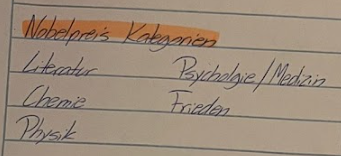 Nobelpreis Kategorien
Literatur Psycholgie/Medizin
Chemie Frieden
Physik